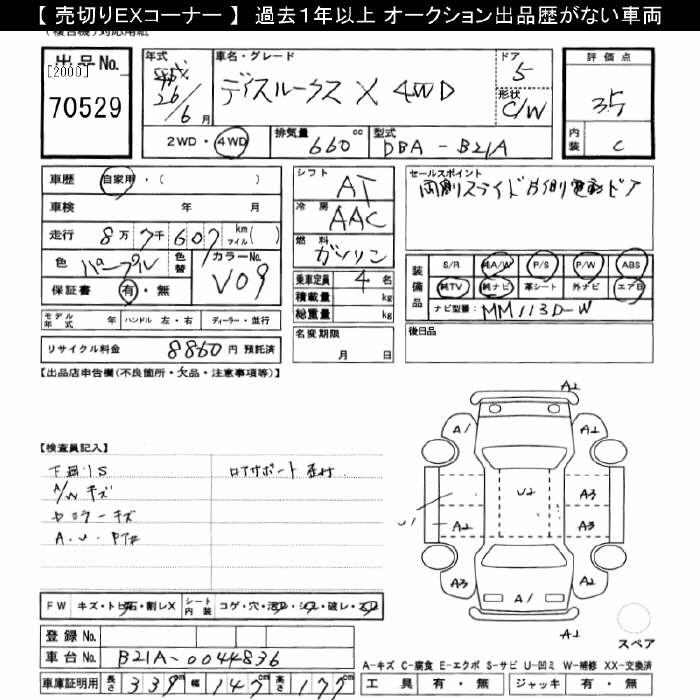 【 売切りEXコーナー 】 過去１年以上 オークション出品歴がない車両
出品No.
[2000]
70529
年式
26/6月
車名・グレード
デイズルークス X 4WD
ドア
5
形状
C/W
評価点
3.5
内装
C
2WD・4WD
排気量
660cc
型式
DBA-B21A
車歴
自家用・( )
車検 年 月
走行 8万7千607km マイル( )
色 パープル 色替
カラーNo.
V09
保証書 有・無
モデル年式 年 ハンドル 左・右 ディーラー・並行
リサイクル料金 8860円 預託済
シフト
AT
冷房
AAC
燃料
ガソリン
乗車定員 4名
積載量 kg
総重量 kg
名変期限
月 日
セールスポイント
両側スライド片側電動ドア
装備品
S/R 純A/W P/S P/W ABS
純TV 純ナビ 革シート 外ナビ エアB
ナビ型番: MM113D-W
後日品
【出品店申告欄(不良箇所・欠品・注意事項等)】
【検査員記入】
下廻りS
A/W キズ
ミラーキズ
ロアサポート
A2
A1 A2
U2 A3
U1 A2 A3
A3 A2
A1
A2
スペア
FW キズ・トビ石・割レX シート内装 コゲ・穴・汚レ・シミ・破レ・スレ
登録No.
車台No. B21A-0044836
車庫証明用 長さ 339cm 幅 147cm 高さ 177cm
A-キズ C-腐食 E-エクボ S-サビ U-凹ミ W-補修 XX-交換済
工具 有・無 ジャッキ 有・無